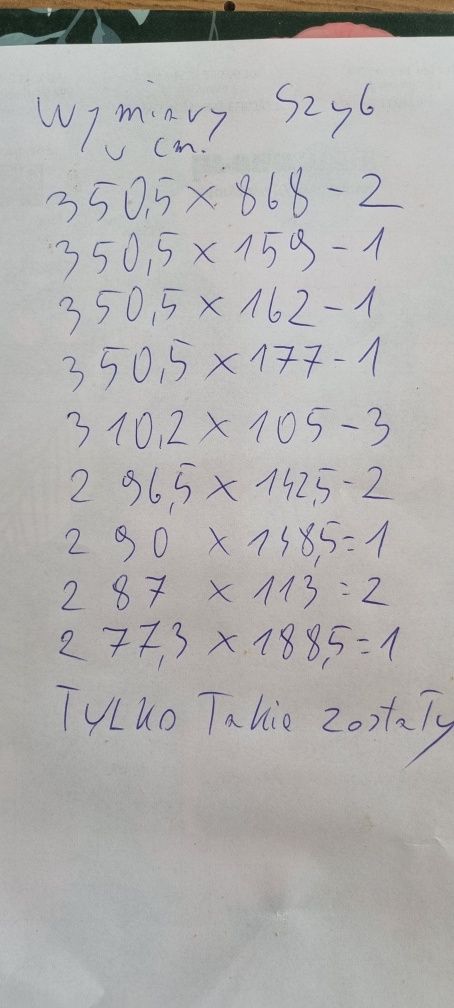 Wymiary Szyb
w cm.
350,5 x 868 - 2
350,5 x 159 - 1
350,5 x 162 - 1
350,5 x 177 - 1
310,2 x 105 - 3
2 96,5 x 142,5 - 2
2 90 x 148,5 = 1
2 87 x 113 = 2
2 77,3 x 188,5 = 1
TYLKO Takie zostały